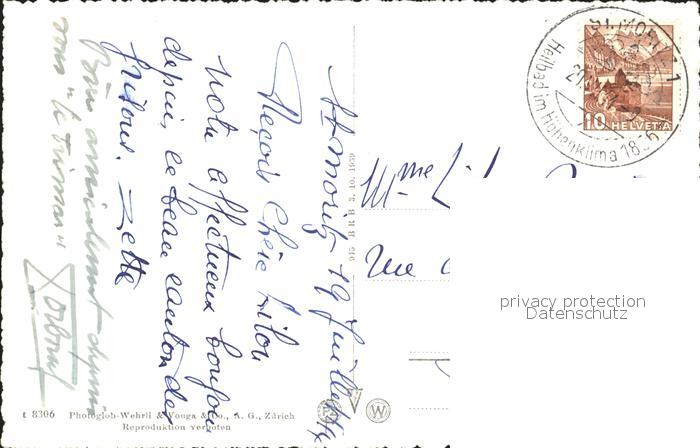 St Moritz 19 Juillet
Reçois chère Lilou
notre affectueux bonjour
depuis ce beau canton des
grisons. Zette
Bien amicalement depuis
Mme
Rue
ST. MORITZ 1
Heilbad im Höhenklima 1856
10 HELVETIA
945 BRB 3.10.1939
privacy protection
Datenschutz
t 8306 Photoglob-Wehrli & Vouga & Co., A. G., Zürich
Reproduktion verboten
W